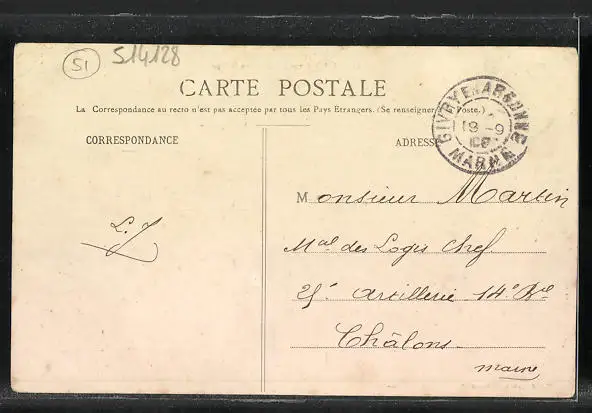 51
S14128
CARTE POSTALE
La Correspondance au recto n'est pas acceptée par tous les Pays Etrangers. (Se renseigner Poste.)
GIVRY EN ARGONNE
18 -9
08
MARNE
CORRESPONDANCE
ADRESSE
Monsieur Martin
L. J
Mal des Logis Chef
25e Artillerie 14e Bie
Châlons
Marne